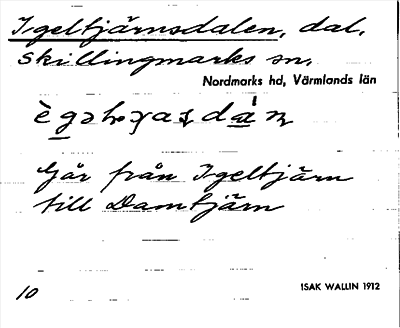 Igeltjärnsdalen, dal,
Skillingmarks sn,
Nordmarks hd, Värmlands län
Går från Igeltjärn
till Damtjärn
10
ISAK WALLIN 1912